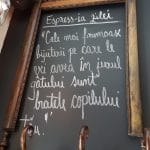 Espress-ia zilei
"Cele mai frumoase
bijuterii pe care le
vei avea în jurul
gâtului sunt
brațele copilului
tău."